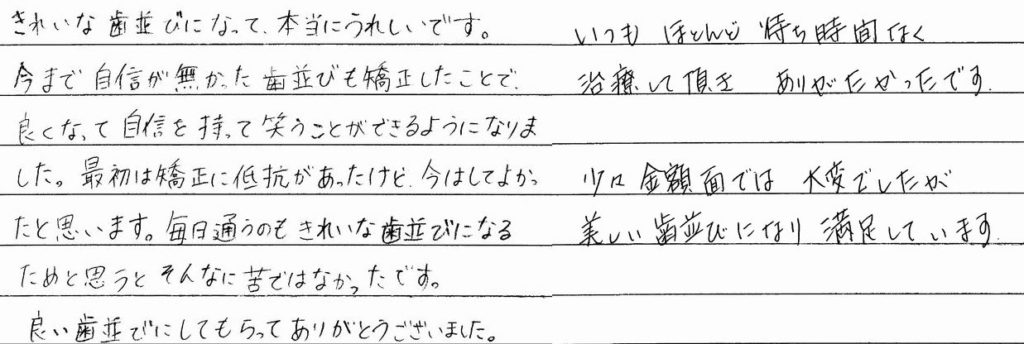 きれいな歯並びになって、本当にうれしいです。
今まで自信が無かった歯並びも矯正したことで、
良くなって自信を持って笑うことができるようになりま
した。最初は矯正に低抗があったけど、今はしてよかっ
たと思います。毎日通うのもきれいな歯並びになる
ためと思うとそんなに苦ではなかったです。
良い歯並びにしてもらってありがとうございました。
いつも ほとんど 待ち時間なく
治療して頂き ありがたかったです。
少々 金額面では 大変でしたが
美しい歯並びになり 満足しています。